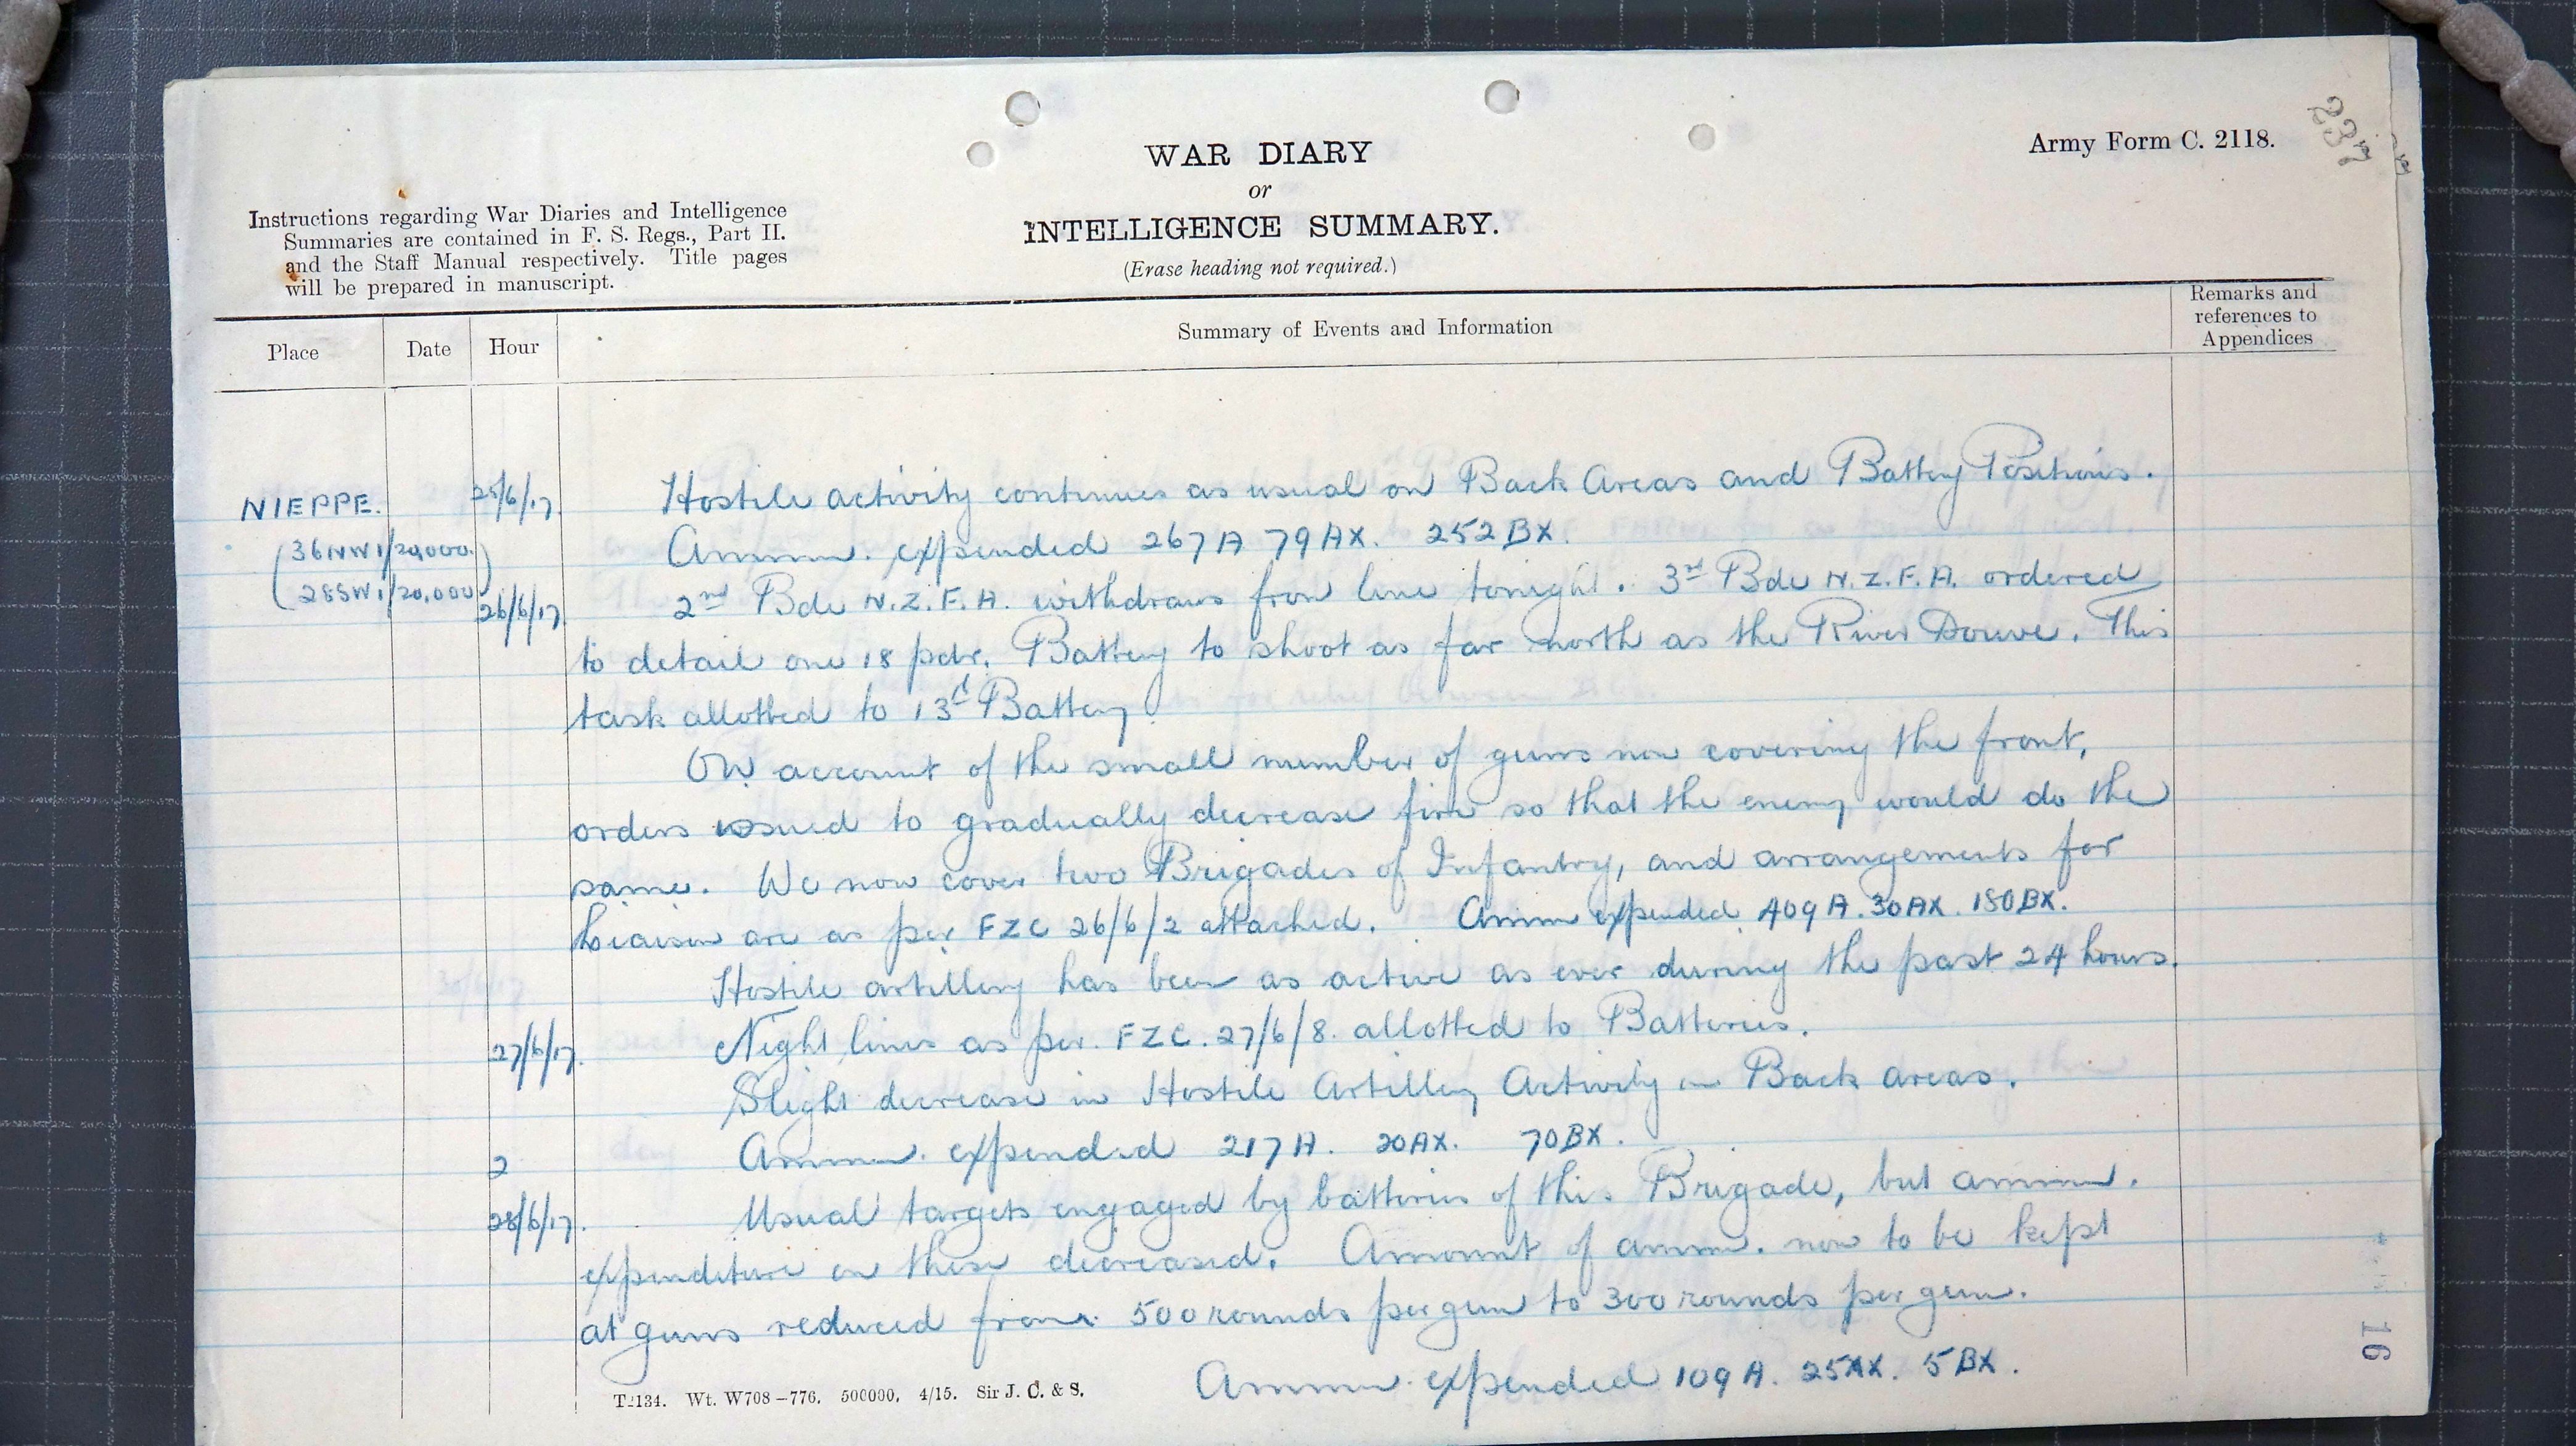 WAR DIARY
or
INTELLIGENCE SUMMARY.
(Erase heading not required.)
Army Form C. 2118.
237
Instructions regarding War Diaries and Intelligence
Summaries are contained in F. S. Regs., Part II.
and the Staff Manual respectively. Title pages
will be prepared in manuscript.
Place
Date
Hour
Summary of Events and Information
Remarks and
references to
Appendices
NIEPPE.
25/6/17.
Hostile activity continues as usual on Back Areas and Battery Positions.
(36NW 1/20,000.)
Ammn. expended 267A 79AX. 252BX.
(28SW 1/20,000)
26/6/17
2nd Bde N.Z.F.A. withdraws from line tonight. 3rd Bde N.Z.F.A. ordered
to detail one 18 pdr. Battery to shoot as far north as the River Douve. This
task allotted to 13th Battery.
On account of the small number of guns now covering the front,
orders issued to gradually decrease fire so that the enemy would do the
same. We now cover two Brigades of Infantry, and arrangements for
liaison are as per FZC 26/6/2 attached. Ammn expended 409A. 30AX. 180BX.
Hostile artillery has been as active as ever during the past 24 hours.
27/6/17.
Night lines as per. FZC. 27/6/8. allotted to Batteries.
Slight decrease in Hostile Artillery Activity in Back areas.
Ammn. expended 217A. 20AX. 70BX.
2
28/6/17.
Usual targets engaged by batteries of this Brigade, but ammn.
expenditure on these decreased. Amount of ammn. now to be kept
at guns reduced from 500 rounds per gun to 300 rounds per gun.
Ammn. expended 109A. 25AX. 5BX.
T2134. Wt. W708-776. 500000. 4/15. Sir J. C. & S.
16